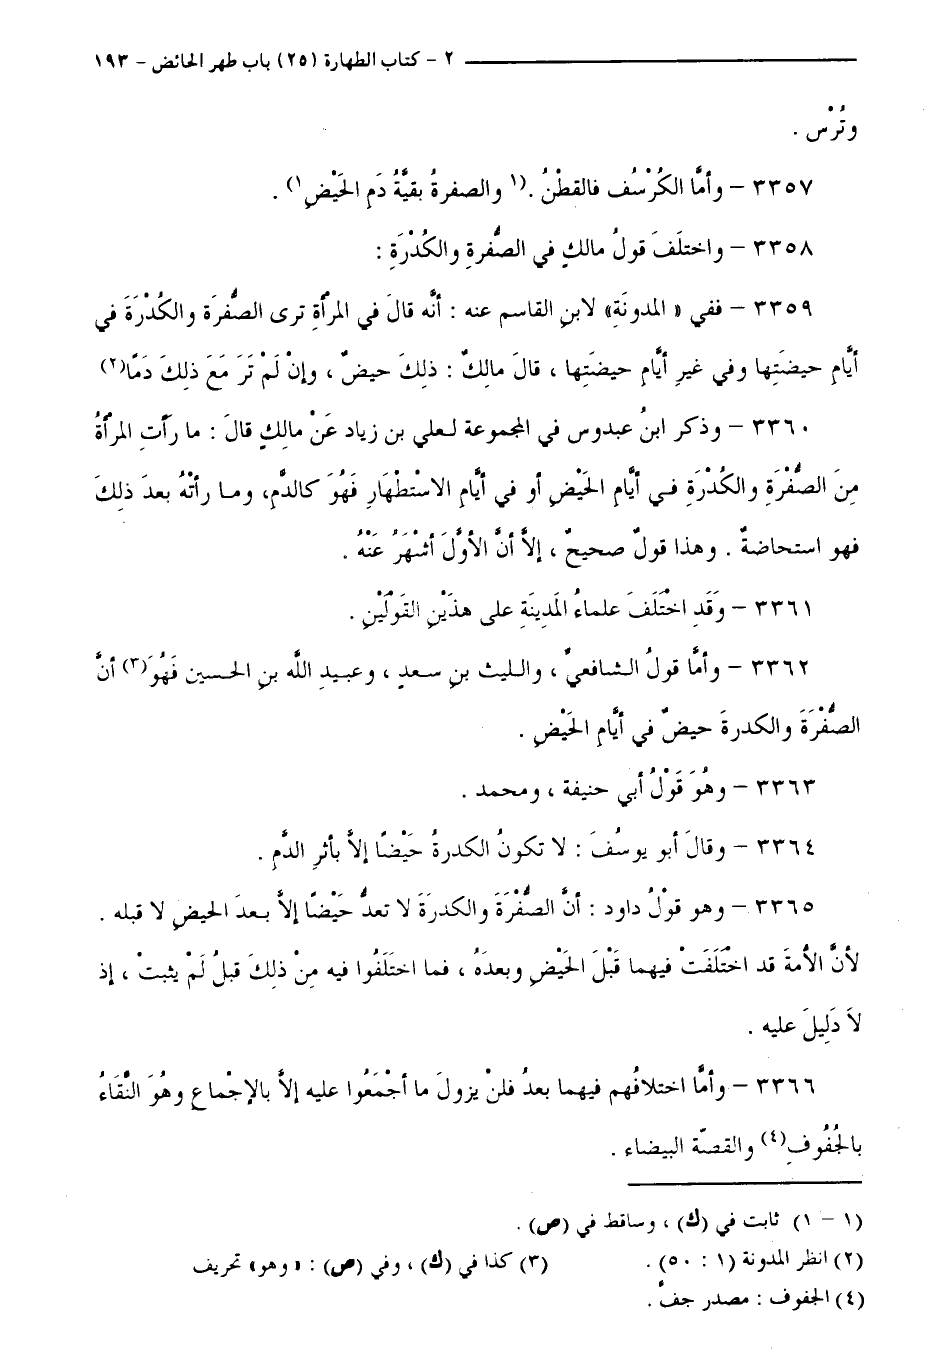 ٢ - كتاب الطهارة (٢٥) باب طهر الحائض - ١٩٣
وتُرْس .
٣٣٥٧ - وأمَّا الكُرْسُف فالقطْنُ .(١ والصفرةُ بقيَّةُ دَمِ الحَيْضِ١) .
٣٣٥٨ - واختلَفَ قولُ مالكٍ في الصُّفرةِ والكُدْرَةِ :
٣٣٥٩ - ففي « المدونَةِ» لابنِ القاسم عنه : أنَّه قالَ في المرْأةِ ترى الصُّفْرَة والكُدْرَةَ في
أيَّامِ حيضَتِها وفي غيرِ أيَّامِ حيضَتِها ، قالَ مالكٌ : ذلكَ حيضٌ ، وإنْ لَمْ تَرَ مَعَ ذلكَ دَمًا(٢)
٣٣٦٠ - وذكر ابنُ عبدوس في المجموعة لعلي بن زياد عَنْ مالكٍ قالَ : ما رأتِ المرْأةُ
مِنَ الصُّفْرَةِ والكُدْرَةِ فـي أيَّامِ الحَيْضِ أو في أيَّامِ الاسْتظْهَارِ فَهُوَ كالدَّمِ، ومـا رأتْهُ بعدَ ذلكَ
فهو استحاضةٌ . وهذا قولٌ صحيحٌ ، إلاَّ أنَّ الأوَّلَ أشْهَرُ عَنْهُ .
٣٣٦١ - وَقَدِ اخْتَلَفَ علماءُ المَدِينَةِ على هذَيْنِ القَوْلَيْنِ .
٣٣٦٢ - وأمَّا قولُ الـشافعيِّ ، والـليث بنِ سـعدٍ ، وعبـيدِ اللَّه بنِ الحـسين فَهُوَ(٣) أنَّ
الصُّفْرَةَ والكدرةَ حيضٌ في أيَّامِ الحَيْضِ .
٣٣٦٣ - وهُوَ قَوْلُ أبي حنيفة ، ومحمد .
٣٣٦٤ - وقالَ أبو يوسُفَ : لا تكونُ الكدرةُ حَيْضًا إلاَّ بأثرِ الدَّمِ .
٣٣٦٥ - وهو قولُ داود : أنَّ الصُّفْرَةَ والكدرَةَ لا تعدُّ حَيْضًا إلاَّ بـعدَ الحيضِ لا قبله .
لأنَّ الأمةَ قد اخْتَلَفَتْ فيهما قَبْلَ الحَيْضِ وبعدَهُ ، فما اختلَفُوا فيه مِنْ ذلكَ قبلُ لَمْ يثبتْ ، إذ
لاَ دَلِيلَ عليه .
٣٣٦٦ - وأمَّا اختلافُهم فيهما بعدُ فلنْ يزولَ ما أجْمَعُوا عليه إلاَّ بالإجْماعِ وهُوَ النَّقَاءُ
بالجُفُوفِ(٤) والقصّة البيضاء .
(١ - ١) ثابت في (ك) ، وساقط في (ص) .
(٢) انظر المدونة (١ : ٥٠) . (٣) كذا في (ك) ، وفي (ص) : « وهو» تحريف
(٤) الجفوف : مصدر جفّ .